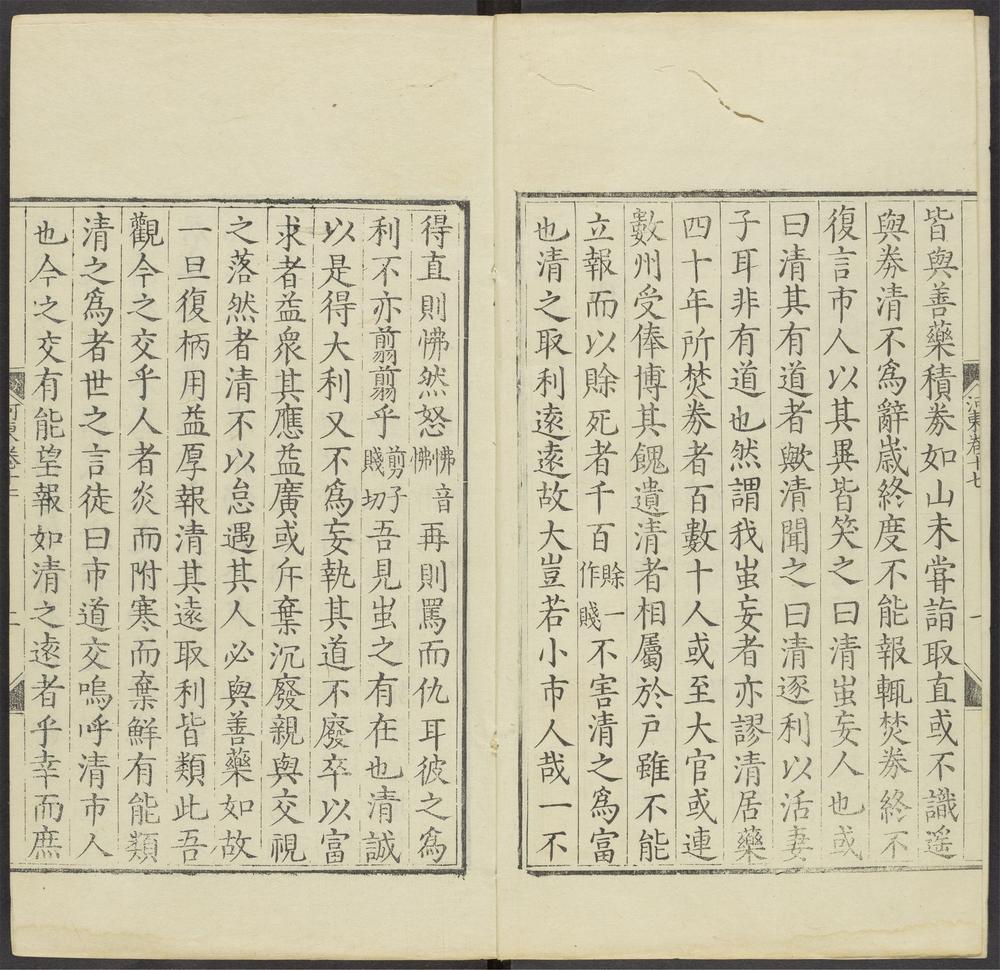 皆與善藥積券如山未甞詣取直或不識遥
與券清不爲辭歳終度不能報輒焚券終不
復言市人以其異皆笑之曰清蚩妄人也或
曰清其有道者歟清聞之曰清逐利以活妻
子耳非有道也然謂我蚩妄者亦謬清居藥
四十年所焚券者百數十人或至大官或連
數州受俸博其餽遺清者相屬於户雖不能
立報而以賖死者千百賖一作賤不害清之爲富
也清之取利逺逺故大豈若小市人哉一不
得直則怫然怒怫音怫再則罵而仇耳彼之爲
利不亦翦翦乎剪子賤切吾見蚩之有在也清誠
以是得大利又不爲妄執其道不廢卒以富
求者益衆其應益廣或斥棄沉廢親與交視
之落然者清不以怠遇其人必與善藥如故
一旦復柄用益厚報清其逺取利皆類此吾
觀今之交乎人者炎而附寒而棄鮮有能類
清之爲者世之言徒曰市道交嗚呼清市人
也今之交有能望報如清之逺者乎幸而庶
河東卷十七
一